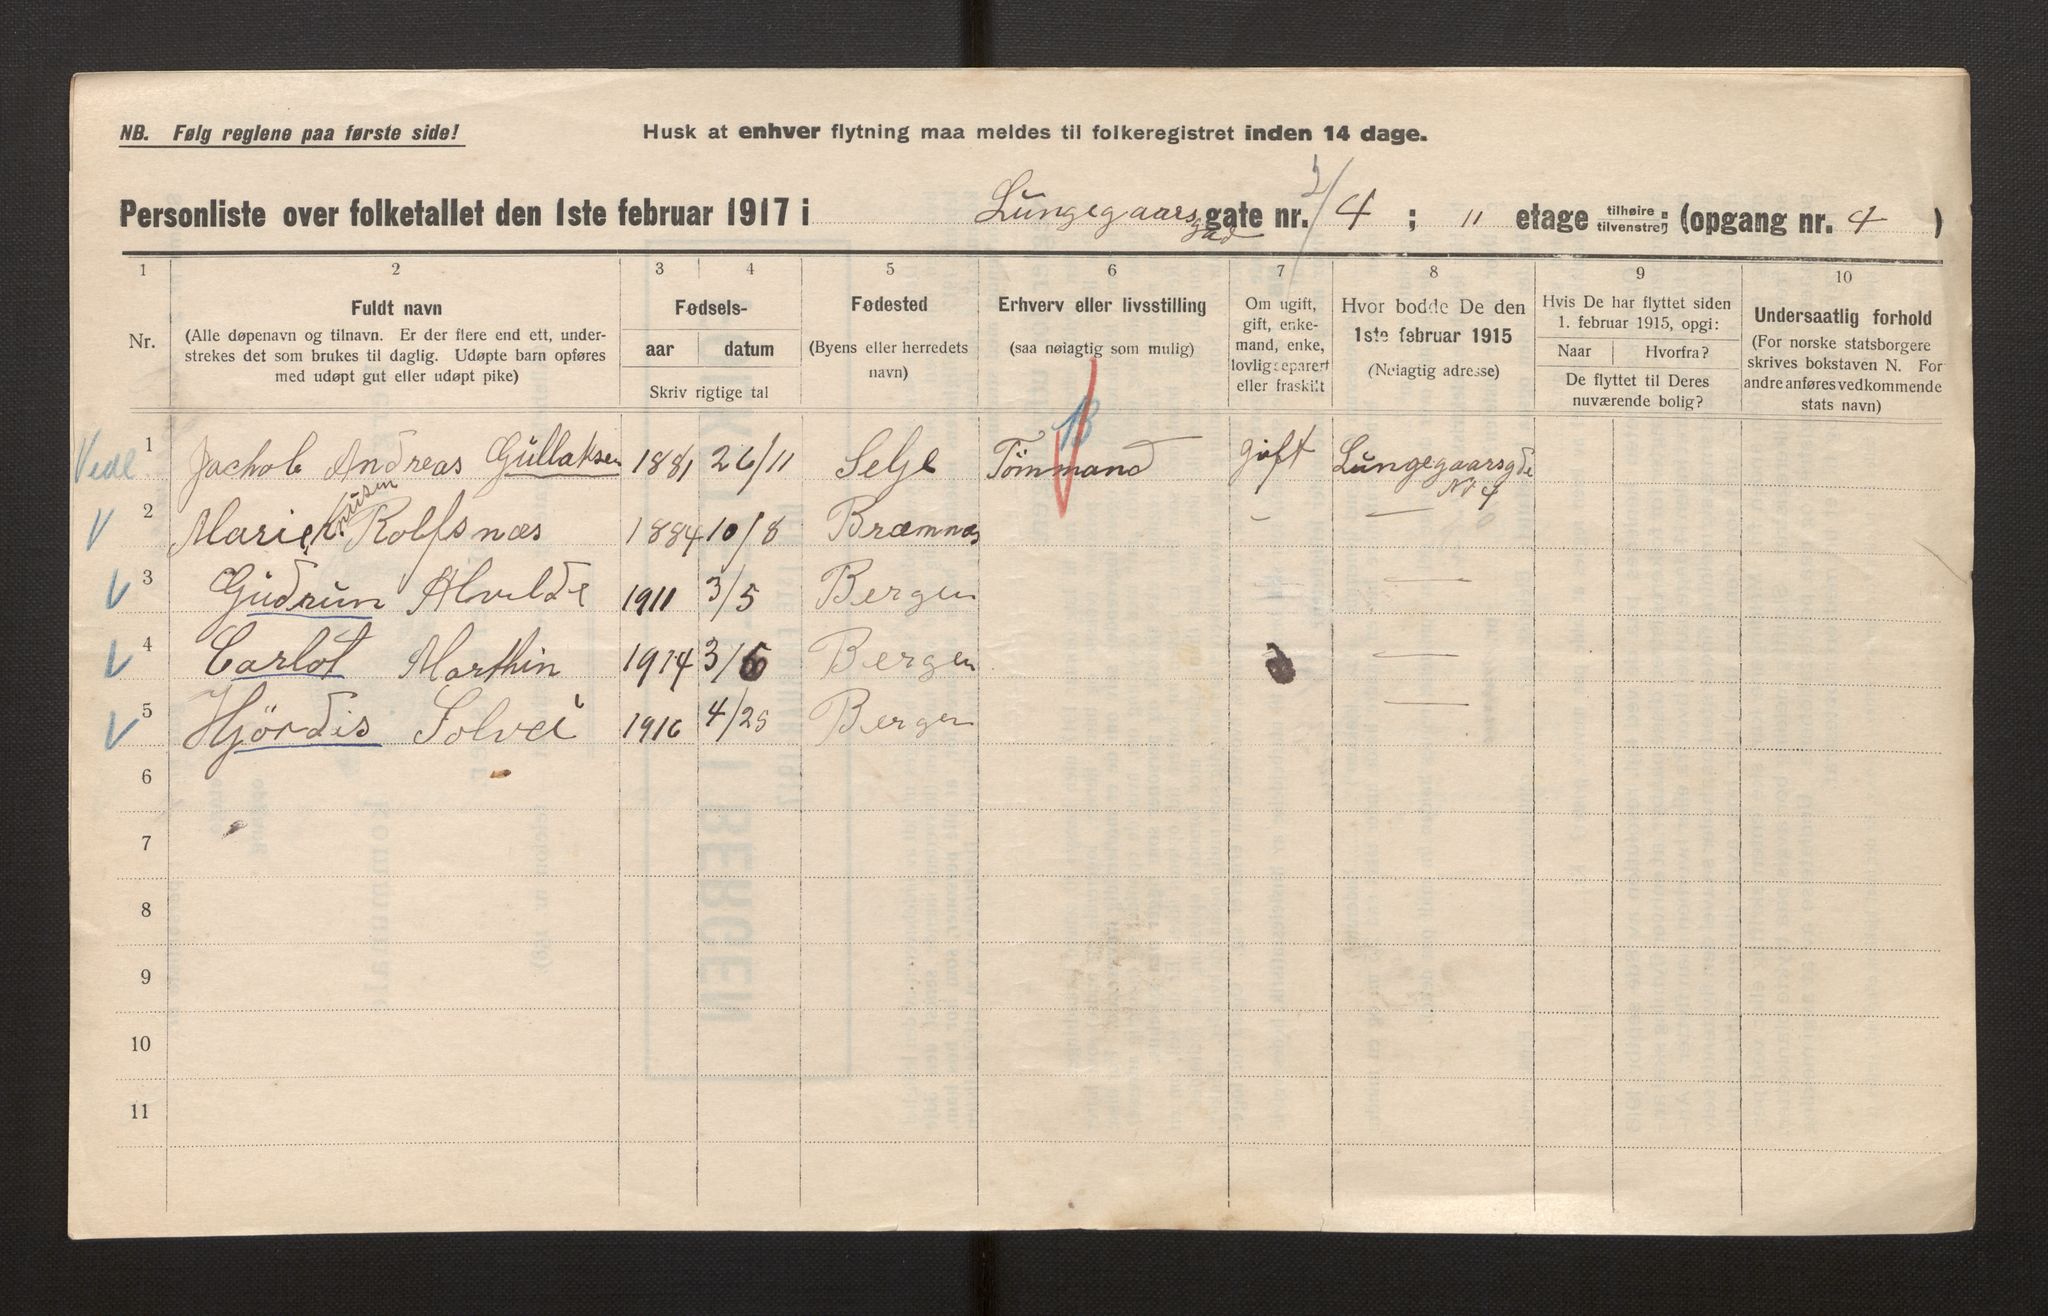 NB. Følg reglene paa første side!
Husk at enhver flytning maa meldes til folkeregistret inden 14 dage.
Personliste over folketallet den 1ste februar 1917 i Lungegaarsgad gate nr. 4 ; 11 etage tilhøire tilvenstre; (opgang nr. 4 )
1 2 3 4 5 6 7 8 9 10
Nr.
Fuldt navn
(Alle døpenavn og tilnavn. Er der flere end ett, under-
strekes det som brukes til daglig. Udøpte barn opføres
med udøpt gut eller udøpt pike)
Fødsels-
aar datum
Skriv rigtige tal
Fødested
(Byens eller herredets
navn)
Erhverv eller livsstilling
(saa nøiagtig som mulig)
Om ugift,
gift, enke-
mand, enke,
lovlig separert
eller fraskilt
Hvor bodde De den
1ste februar 1915
(Nøiagtig adresse)
Hvis De har flyttet siden
1. februar 1915, opgi:
Naar Hvorfra?
De flyttet til Deres
nuværende bolig?
Undersaatlig forhold
(For norske statsborgere
skrives bokstaven N. For
andre anføres vedkommende
stats navn)
1 Jachob Andreas Gullaksen 1881 26/11 Selje Tömmand gift Lungegaarsgde
Nr 4
2 Marie Rolfsnæs 1884 10/8 Bræmnæs - —
3 Gudrun Alvilde 1911 3/5 Bergen — —
4 Carlot Marthin 1914 3/6 Bergen —
5 Hjördis Solvei 1916 4/25 Bergen —
6
7
8
9
10
11